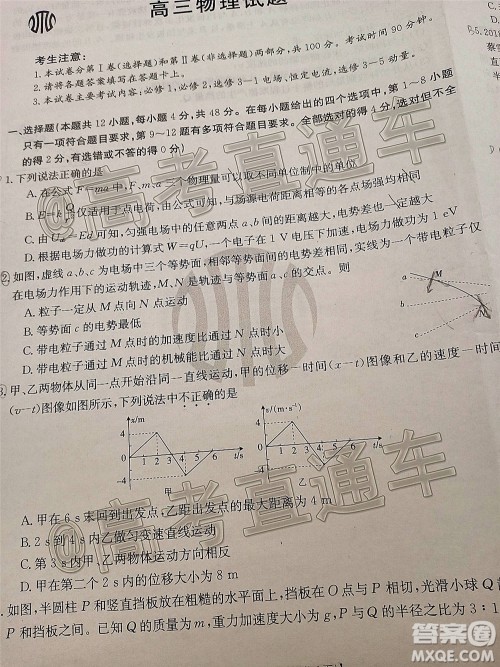 高三物理试题
考生注意:
1.本试卷分第Ⅰ卷(选择题)和第Ⅱ卷(非选择题)两部分,共100分。考试时间90分钟。
2.请将各题答案填写在答题卡上。
3.本试卷主要考试内容:必修1,必修2,选修3—1电场、恒定电流。
一、选择题(本题共12小题,每小题4分,共48分。在每小题给出的四个选项中,第1~8小题
只有一项符合题目要求,第9~12题有多项符合题目要求。全部选对的得4分,选对但不全
的得2分,有选错或不答的得0分)
1.下列说法正确的是
A.在公式F=ma中,F、m、a三个物理量可以取任何单位制中的单位
仅适用于点电荷,由公式可知,与场源电荷距离相等的各点场强均相同
C.由U=Ed可知,匀强电场中的任意两点a、b间的距离越大,电势差也一定越大
D.根据电场力做功的计算式W=qU,一个电子在1 V电压下电场力做功为1 eV
2.如图,虚线a、b、c为电场中三个等势面,相邻等势面间的电势差相等,实线为一个带电粒子仅
在电场力作用下的运动轨迹,M、N是轨迹与等势面a、c的交点。则
A.粒子一定从M点向N点运动
B.等势面c的电势最低
C.带电粒子通过M点的加速度比通过N点时小
D.带电粒子通过M点的机械能比通过N点时小
a
b
c
M
N
3.甲、乙两物体从同一点开始沿同一直线运动,甲的位移—时间(x—t)图像和乙的速度—时间
(v—t)图像如图所示,下列说法中不正确的是
s/m
4
0
-4
1 2 3 4 5 6 t/s
甲
s/(m·s⁻¹)
4
0
-4
1 2 3 4 5 6 t/s
乙
A.甲在6 s末回到出发点,甲运动中,距出发点的最大距离为4 m
B.乙做匀变速直线运动
C.第3 s内甲、乙两物体运动方向相反
D.甲在第二个2 s内的位移大小为8 m
如图,半圆柱P和竖直挡板放在粗糙的水平面上,挡板在O点与P相切,光滑小球Q
P和挡板之间。已知Q的质量为m,重力加速度大小为g,P与Q的半径之比为3:1
@高考直通车
@高考直通车
答案圈
MXQE.COM